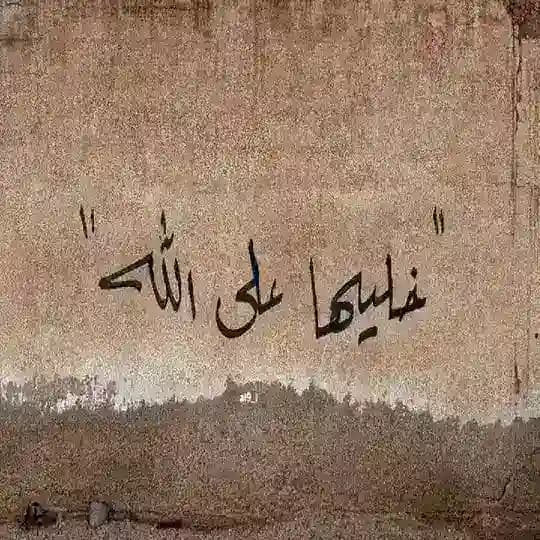 "خليها على الله"